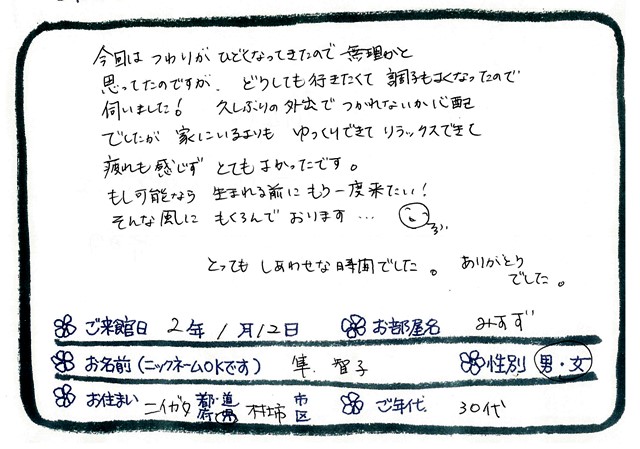 今回は つわりが ひどくなってきたので 無理かと
思ってたのですが、どうしても行きたくて 調子もよくなったので
伺いました! 久しぶりの外出で つかれないか心配
でしたが 家にいるよりも ゆっくりできて リラックスできて
疲れも感じず とてもよかったです。
もし可能なら 生まれる前に もう一度来たい!
そんな風に もくろんで おります …
とっても しあわせな時間でした。 ありがとう
でした。
ご来館日 2年 1月12日 お部屋名 みすず
お名前(ニックネームOKです) 隼.智子 性別 男・女
お住まい ニイガタ 都・道 府・県 村上市 市 区 ご年代 30代